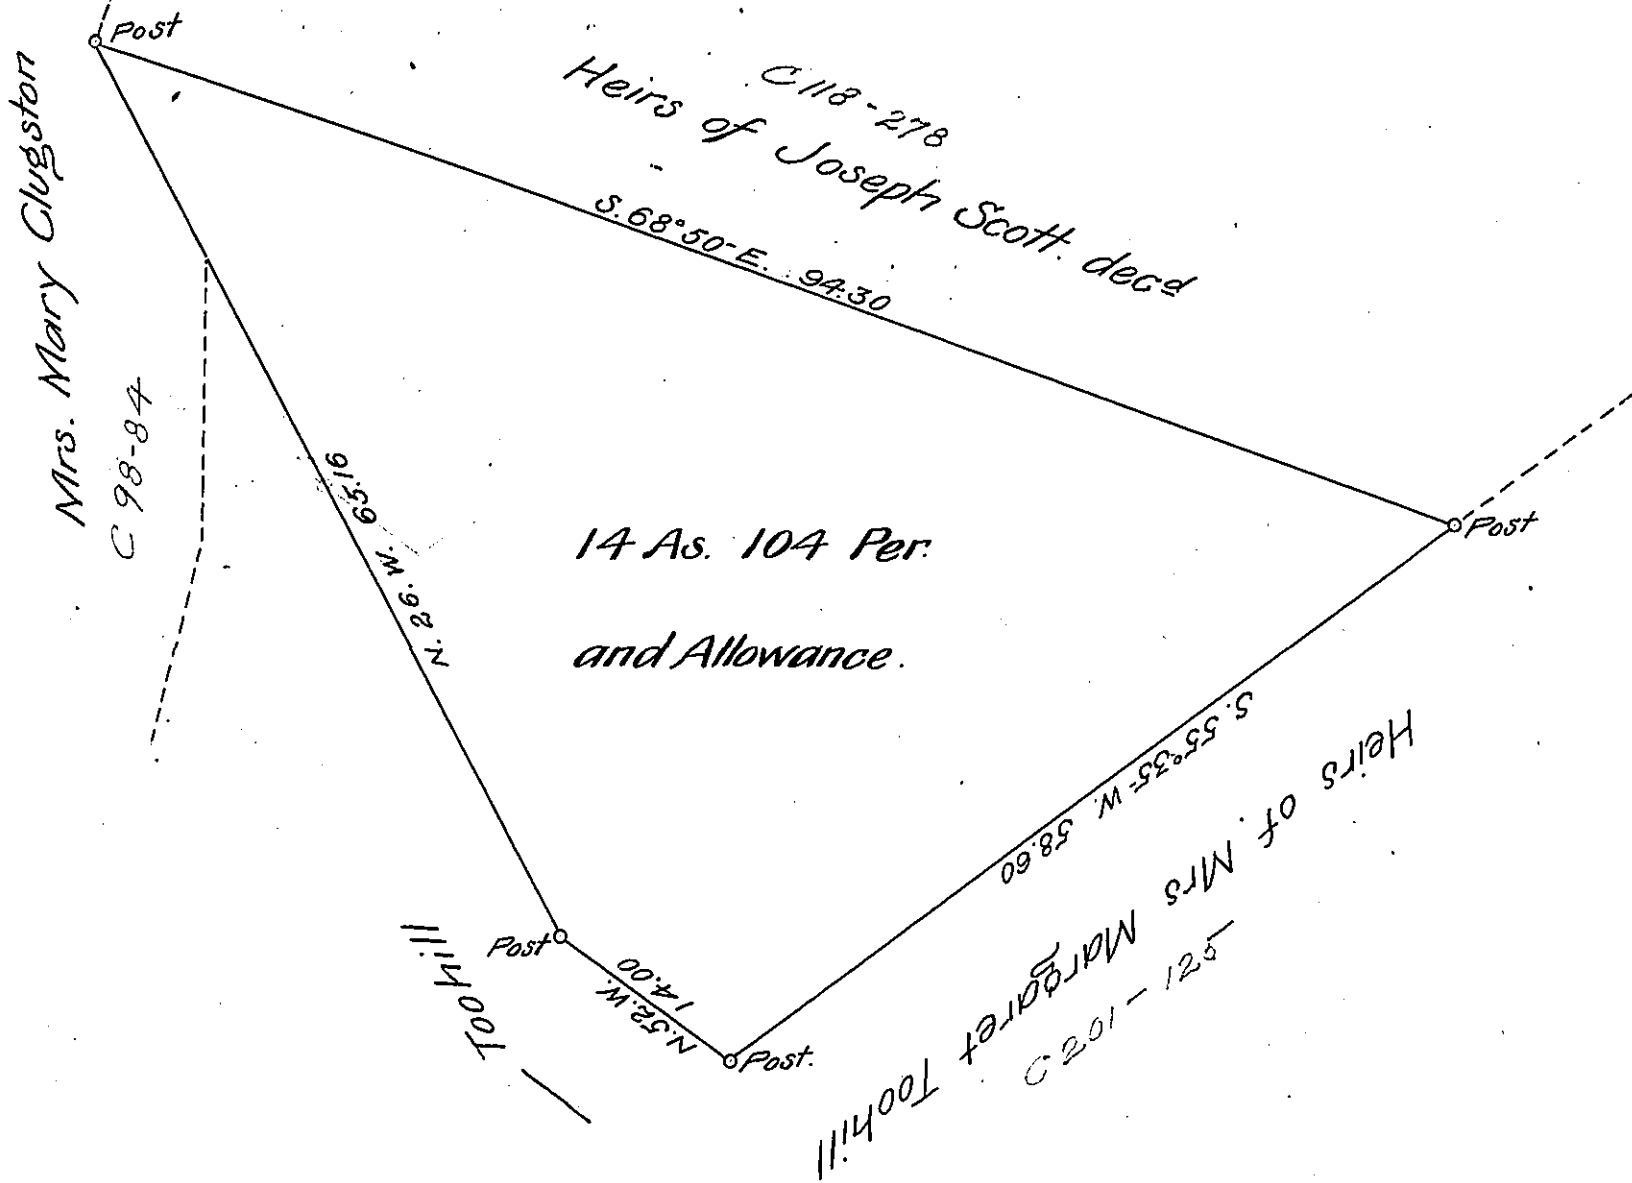 Post
Mrs. Mary Clugston
C 98-84
C 118-278
Heirs of Joseph Scott. decd
S. 68°50' E. 94.30
Post
N. 26. W. 65.16
14 As. 104 Per.
and Allowance.
S. 55°35' W. 58.60
Heirs of Mrs Margaret Toohill
C 201-125
Post
N. 52. W.
14.00
Post.
Toohill